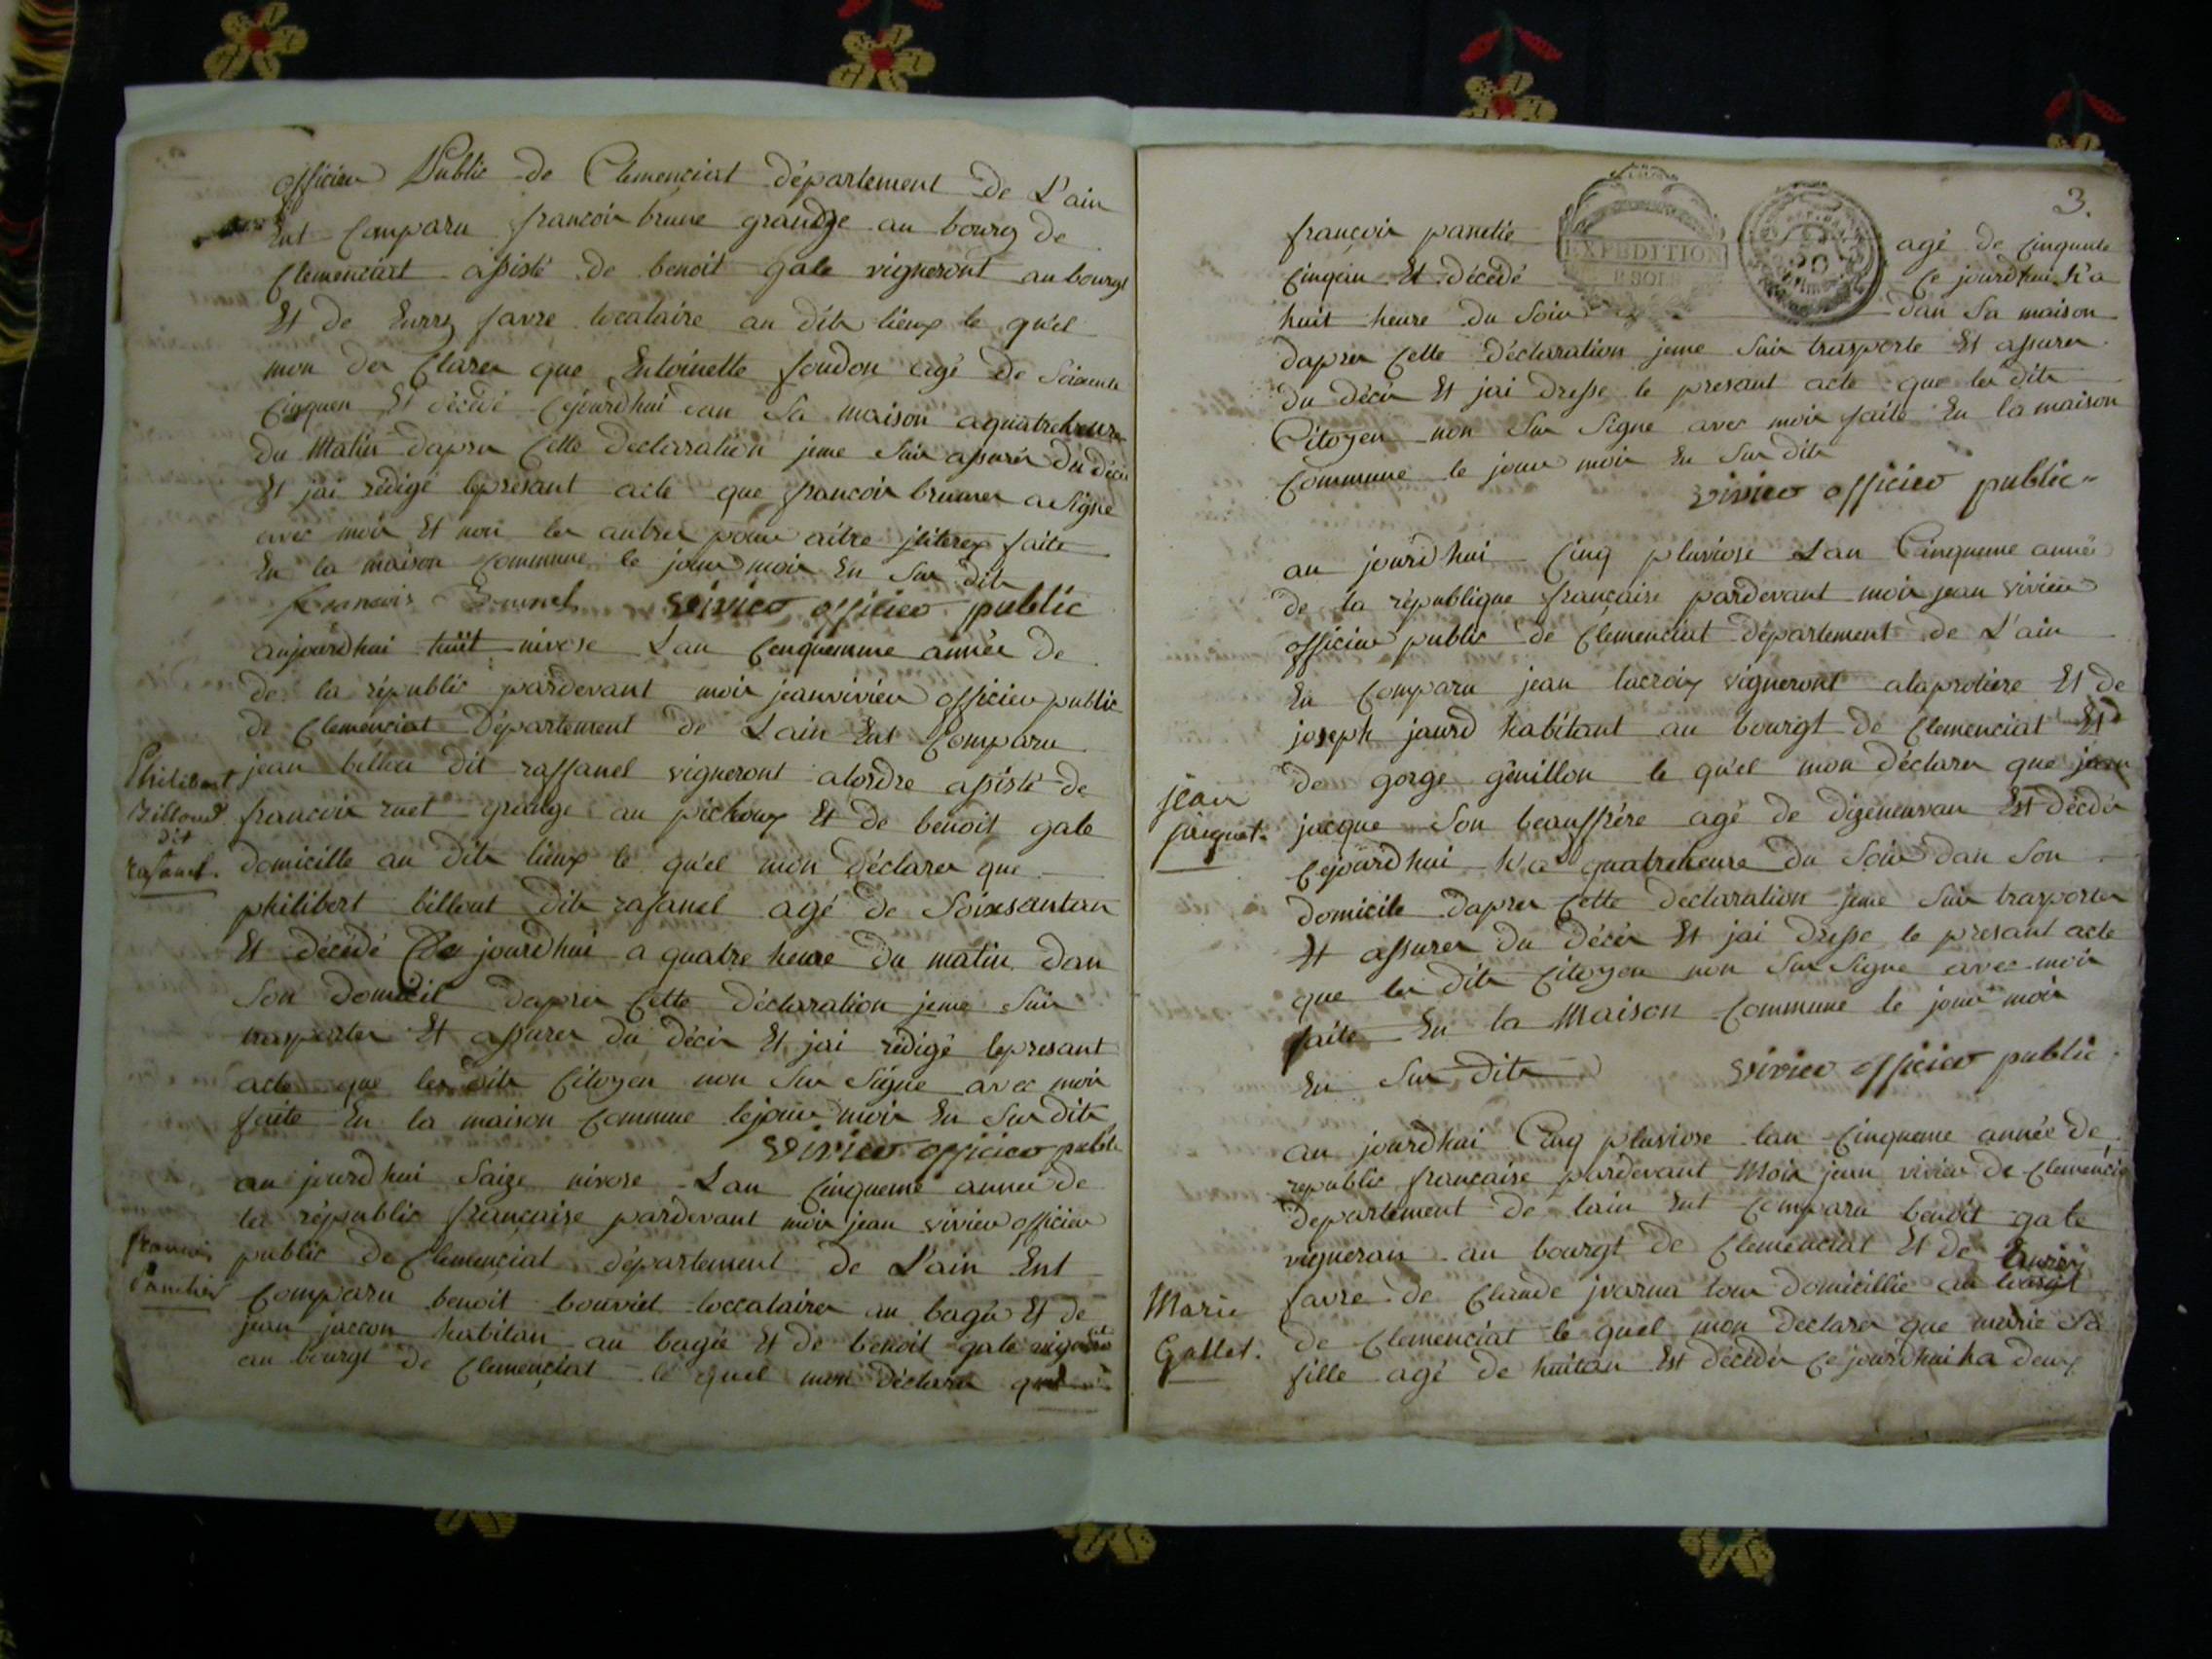 officier Public de Clemenciat département de L'ain
Ent Comparu francois brune grandge au bourg de
Clemenciat assisté de benoit gale vigneront au bourgt
Et de favre locataire au dits lieux le qu'el
mon der Clarer que Entoinette foudon agé de Soixante
Cinquen Et décédé Cejourdhui dan Sa maison aquatreheure
du Matin daprer Cette declaration jeme Suis assurér du déces
Et jai rédigé lepresant acte que francois a Signé
avec mois Et non les autres pour aitre jliterex faite
En la maison Commune le jour mois En Sur dits
francois Brunel vivier officier public
aujourdhui huit nivose Lan Cenquemme année de
de la républic pardevant mois jeanvivier officier public
de Clemenciat Département de Lain Ent Comparu
Philibert
Billoud
dit
rafanel.
jean billou dit raffanel vigneront alordre assisté de
francois ruet grange au pichoux Et de benoit gale
domicille au dits lieux le qu'el mon déclarer que
philibert billout dits rafanel agé de Soixsantan
Et décédé Ce jourdhui a quatre heure du matin dan
Son domicil daprer Cette déclaration jeme Suis
trasporter Et assurer du décès Et jai rédigé lepresant
acte que les dits Citoyen non Sur Signe avec mois
faite En la maison Commune lejour mois En Sur dits
vivier officier public
au jourdhui Saize nivose Lan Cinqueme année de
la républic francaise pardevant mois jean vivier officier
francois
Panchiéz
public de Clemenciat département de L'ain Ent
Comparu benoit bouvret loccatairer au bagé Et de
jean jaccon habitan au bagée Et de benoit gale
au bourgt de Clemenciat le quel mon déclarer que
3.
EXPEDITION
francois panchie agé de Cinquante
Cinqan Et décédé Ce jourdhui h'a
huit heure du Soir dan Sa maison
daprer Cette déclaration jeme Suis trasporte Et assurer
du décès Et jai dresse le presant acte que les dits
Citoyen non Sur Signe avec mois faite En la maison
Commune le jour mois En Sur dits
vivier officier public
au jourd hui Cinq pluviose Lan Cinqueme année
de la république francaise pardevant mois jean vivier
officier public de Clemenciat département de L'ain
En Comparu jean lacroix vigneront alaprotiere Et de
joseph jaurd habitant au bourgt de Clemenciat Et
jean
jacquet.
de gorge génillon le qu'el mon déclarer que jean
jacque Son beauffrére agé de dizeneuvan Est décédér
Cejourdhui h'a quatreheure du Soir dan Son
domicile daprer Cette declaration jeme Suis trasporter
Et assurer du décés Et jai dresse le presant acte
que les dits Citoyen non Sur Signe avec mois
faite En la Maison Commune le jour mois
En Sur dits vivier officier public
au jourdhui Cinq pluviose lan Cinqueme année de
republic francaise pardevant Mois jean vivier de Clemencia
departement de lain Ent Comparu benoit gale
vigneran au bourgt de Clemenciat Et de
Marie
Gallet.
favre de Claude jvarna tous domicillie au bourgt
de Clemenciat le quel mon declarer que marie Sa
fille agé de huitan Est décédér Ce jourdhui ha deux